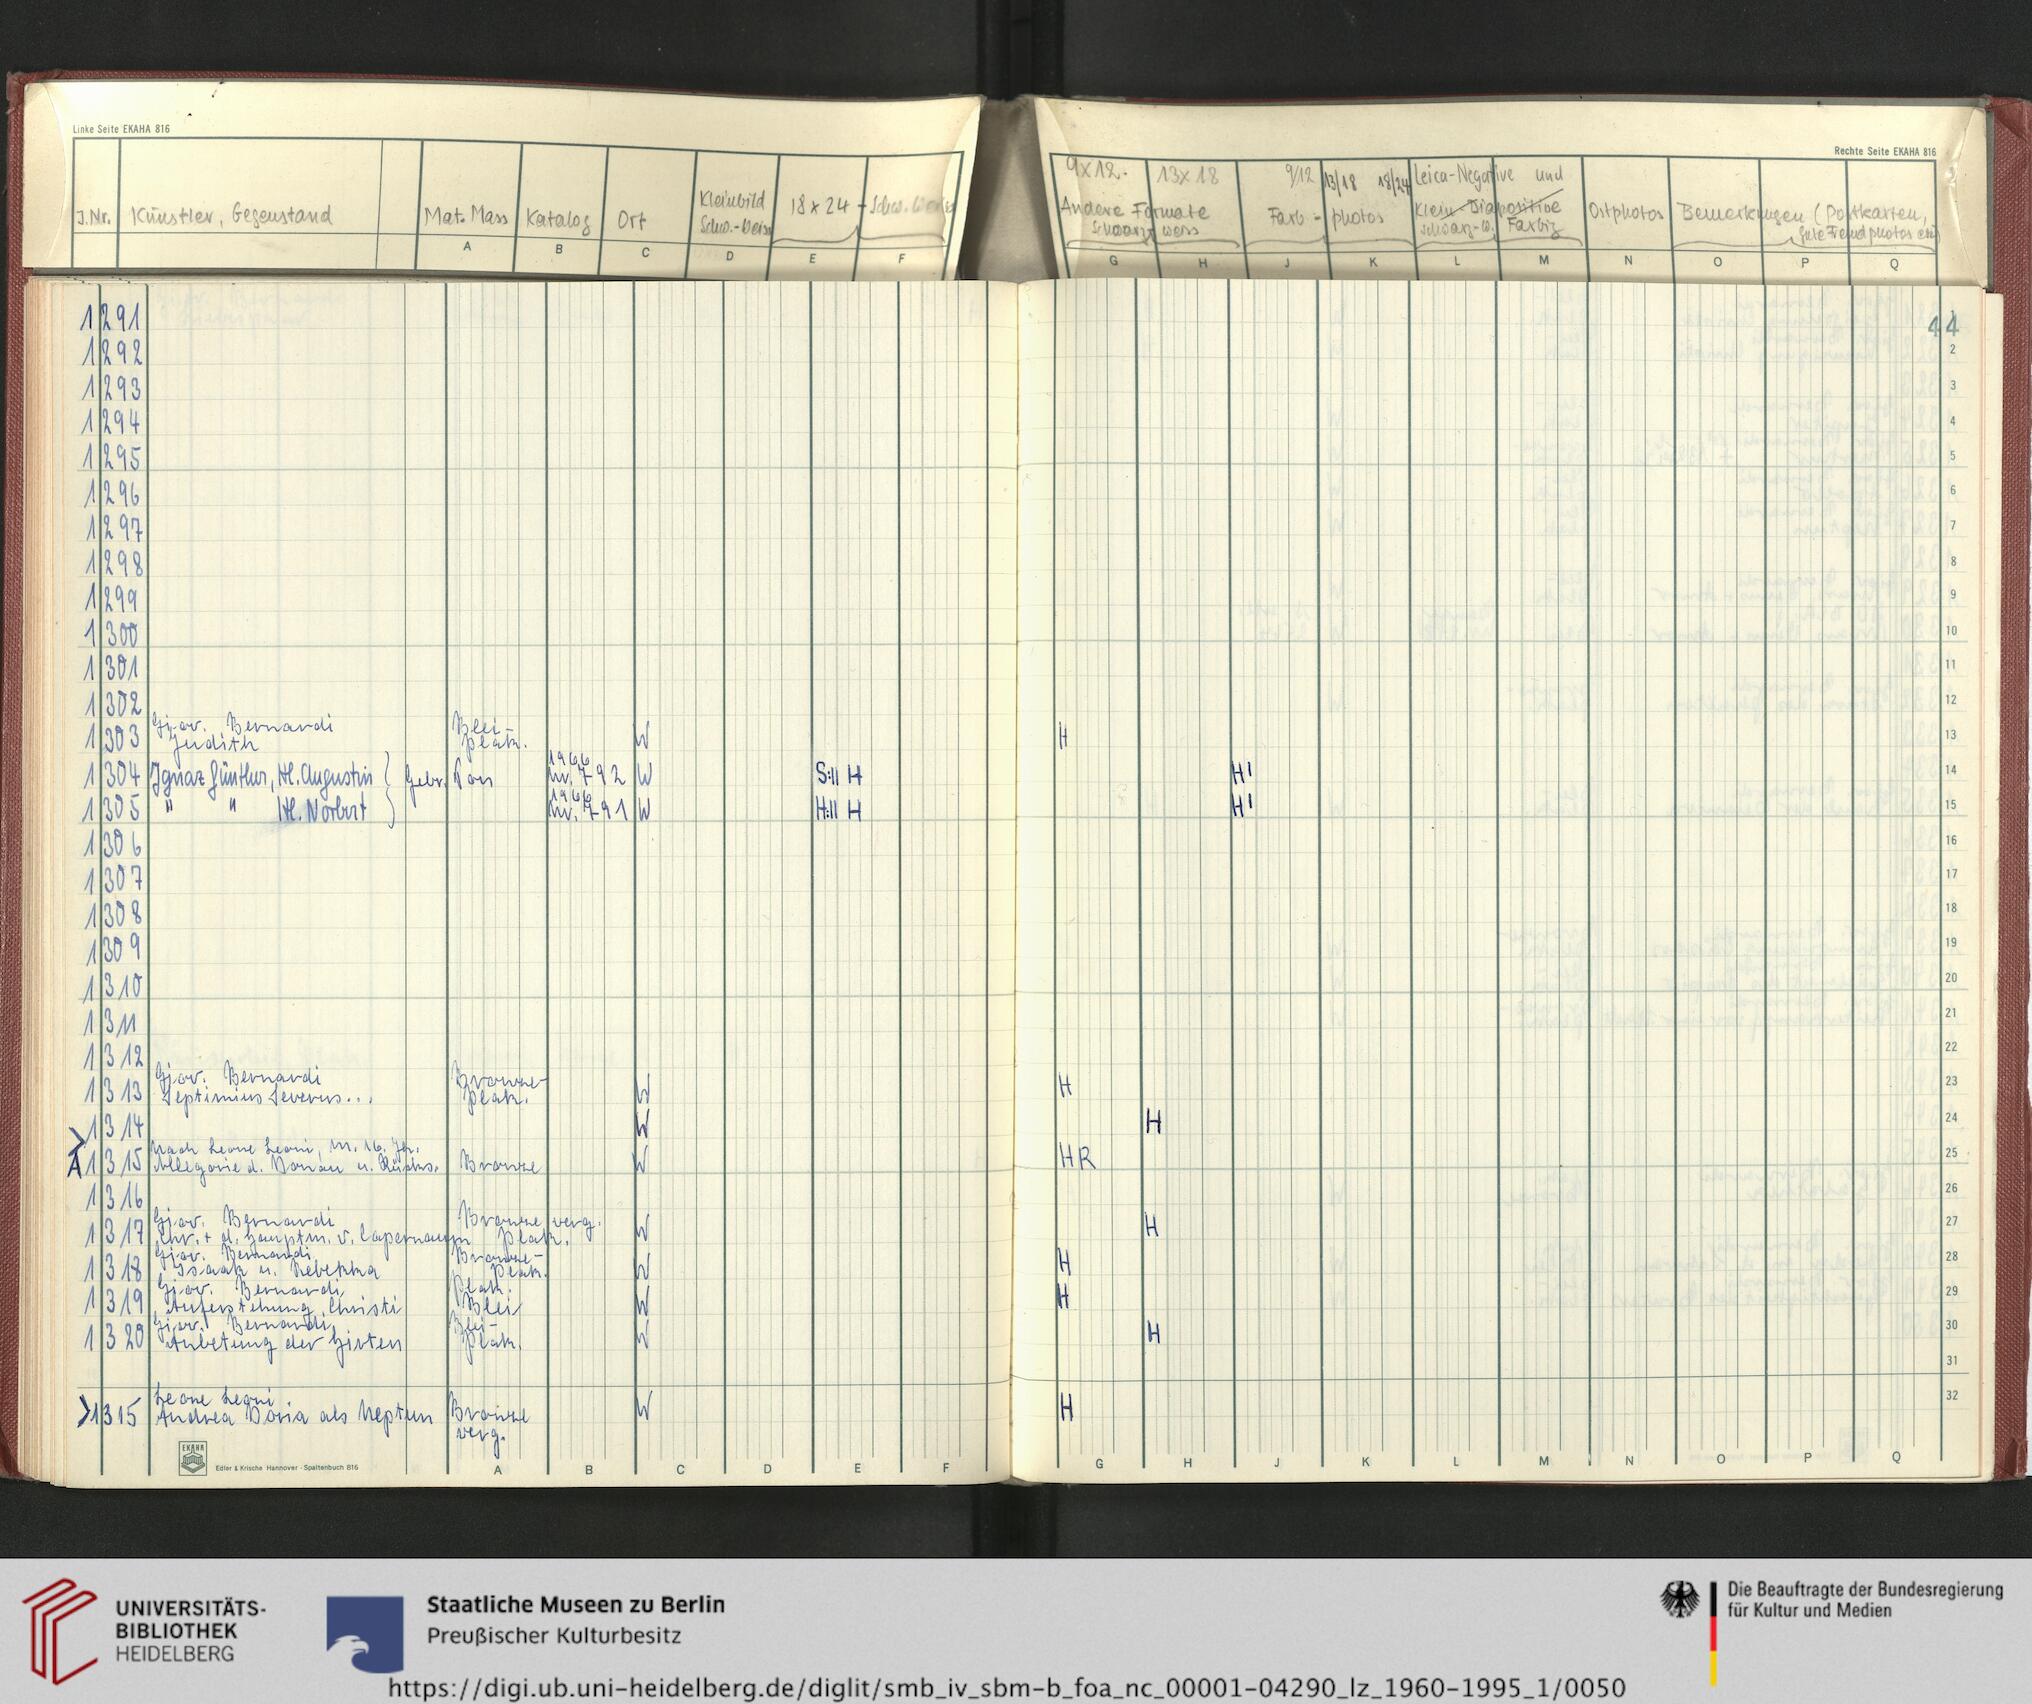 Linke Seite EKAHA 816
J.Nr. Künstler, Gegenstand Mat. Mass Katalog Ort Kleinbild Schw.-Weiss 18x24 - Schw. Weiss
A B C D E F
Rechte Seite EKAHA 816
9x12. 13x18 9/12 13/18 18/24 Leica-Negative und
Andere Formate Farb - photos Klein-Diapositive Ortphotos Bemerkungen (Postkarten,
schwarz weiss schwarz-w. Farbig gute Fremdphotos etc)
G H J K L M N O P Q
44
1291
1292 2
1293 3
1294 4
1295 5
1296 6
1297 7
1298 8
1299 9
1300 10
1301 11
1302 12
Giov. Bernardi Blei-
1303 Judith Plak. W H 13
1966
1304 Ignaz Günther, Hl. Augustin } Gebr. Ton Nr. 792 W S:II H H' 14
1966
1305 " " Hl. Norbert } Nr. 791 W H:II H H' 15
1306 16
1307 17
1308 18
1309 19
1310 20
1311 21
1312 22
Giov. Bernardi Bronze-
1313 Septimius Severus... Plak. W H 23
1314 W H 24
> Nach Leone Leoni, M. 16. Jh.
A 1315 Allegorie d. Donau u. Bronze W HR 25
1316 26
Giov. Bernardi Bronze verg.
1317 Chr. + d. Hauptm. v. Capernaum Plak. W H 27
Giov. Bernardi Bronze-
1318 Isaak u. Rebekka Plak. W H 28
Giov. Bernardi Plak.
1319 Auferstehung Christi Blei W H 29
Giov. Bernardi Blei-
1320 Anbetung der Hirten Plak. W H 30
31
Leone Leoni 32
>1315 Andrea Doria als Neptun Bronze W H
verg.
EKAHA
Edler & Krische Hannover · Spaltenbuch 816
A B C D E F
G H J K L M N O P Q
UNIVERSITÄTS-
BIBLIOTHEK
HEIDELBERG
Staatliche Museen zu Berlin
Preußischer Kulturbesitz
Die Beauftragte der Bundesregierung
für Kultur und Medien
https://digi.ub.uni-heidelberg.de/diglit/smb_iv_sbm-b_foa_nc_00001-04290_lz_1960-1995_1/0050